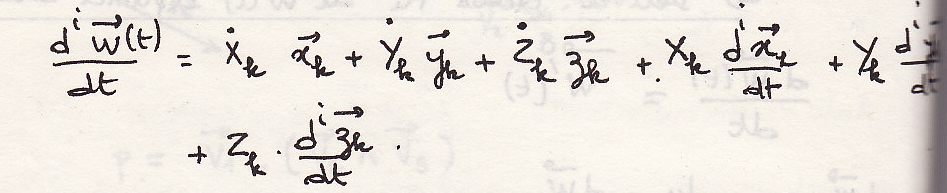 dⁱ w⃗(t)/dt = Ẋₖ x⃗ₖ + Ẏₖ y⃗ₖ + Żₖ z⃗ₖ + Xₖ dⁱx⃗ₖ/dt + Yₖ dⁱ
+ Zₖ · dⁱz⃗ₖ/dt .